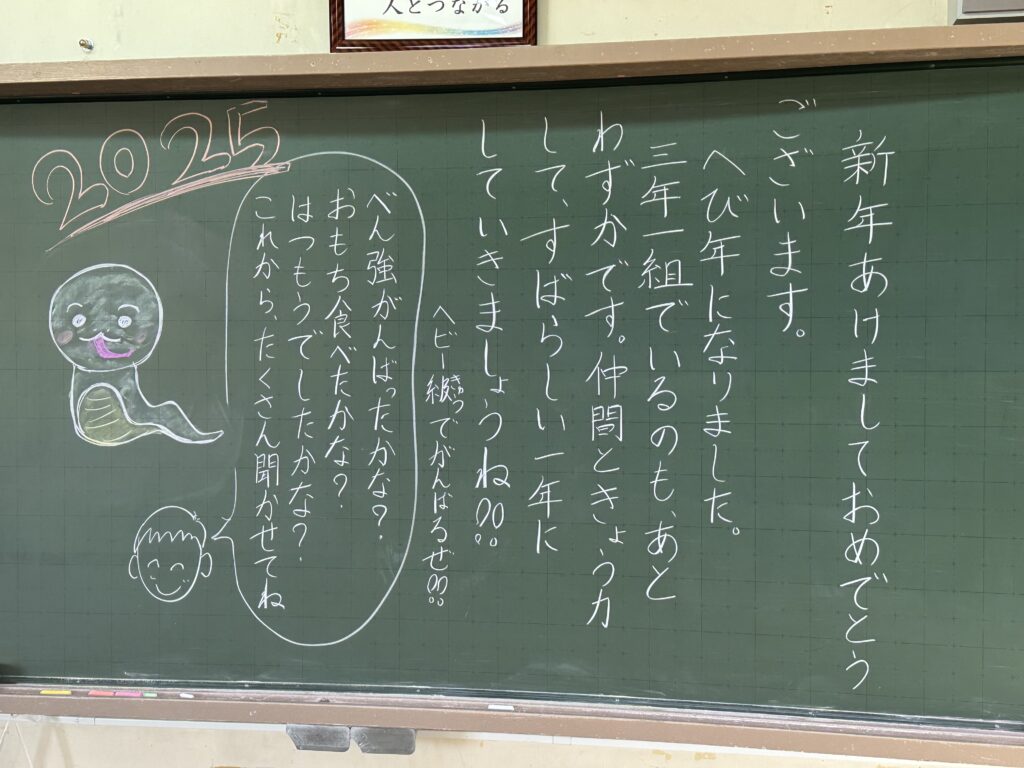 人とつながる
新年あけましておめでとう
ございます。
へび年になりました。
三年一組でいるのも、あと
わずかです。仲間ときょう力
して、すばらしい一年に
していきましょうね!!
ヘビー級でがんばるぜ!!
きゅう
べん強がんばったかな?
おもち食べたかな?
はつもうでしたかな?
これから、たくさん聞かせてね
2025